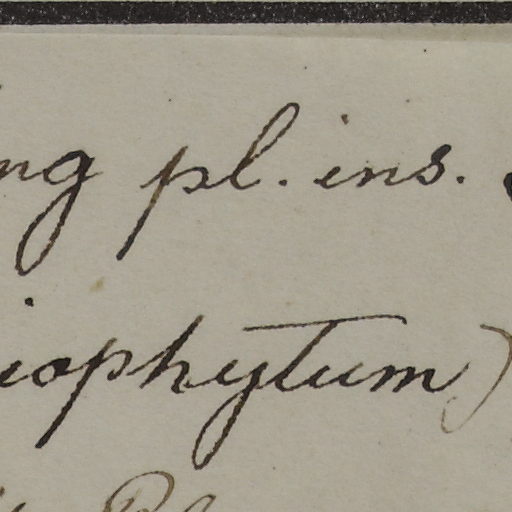 ng pl. ins.
iophytum)